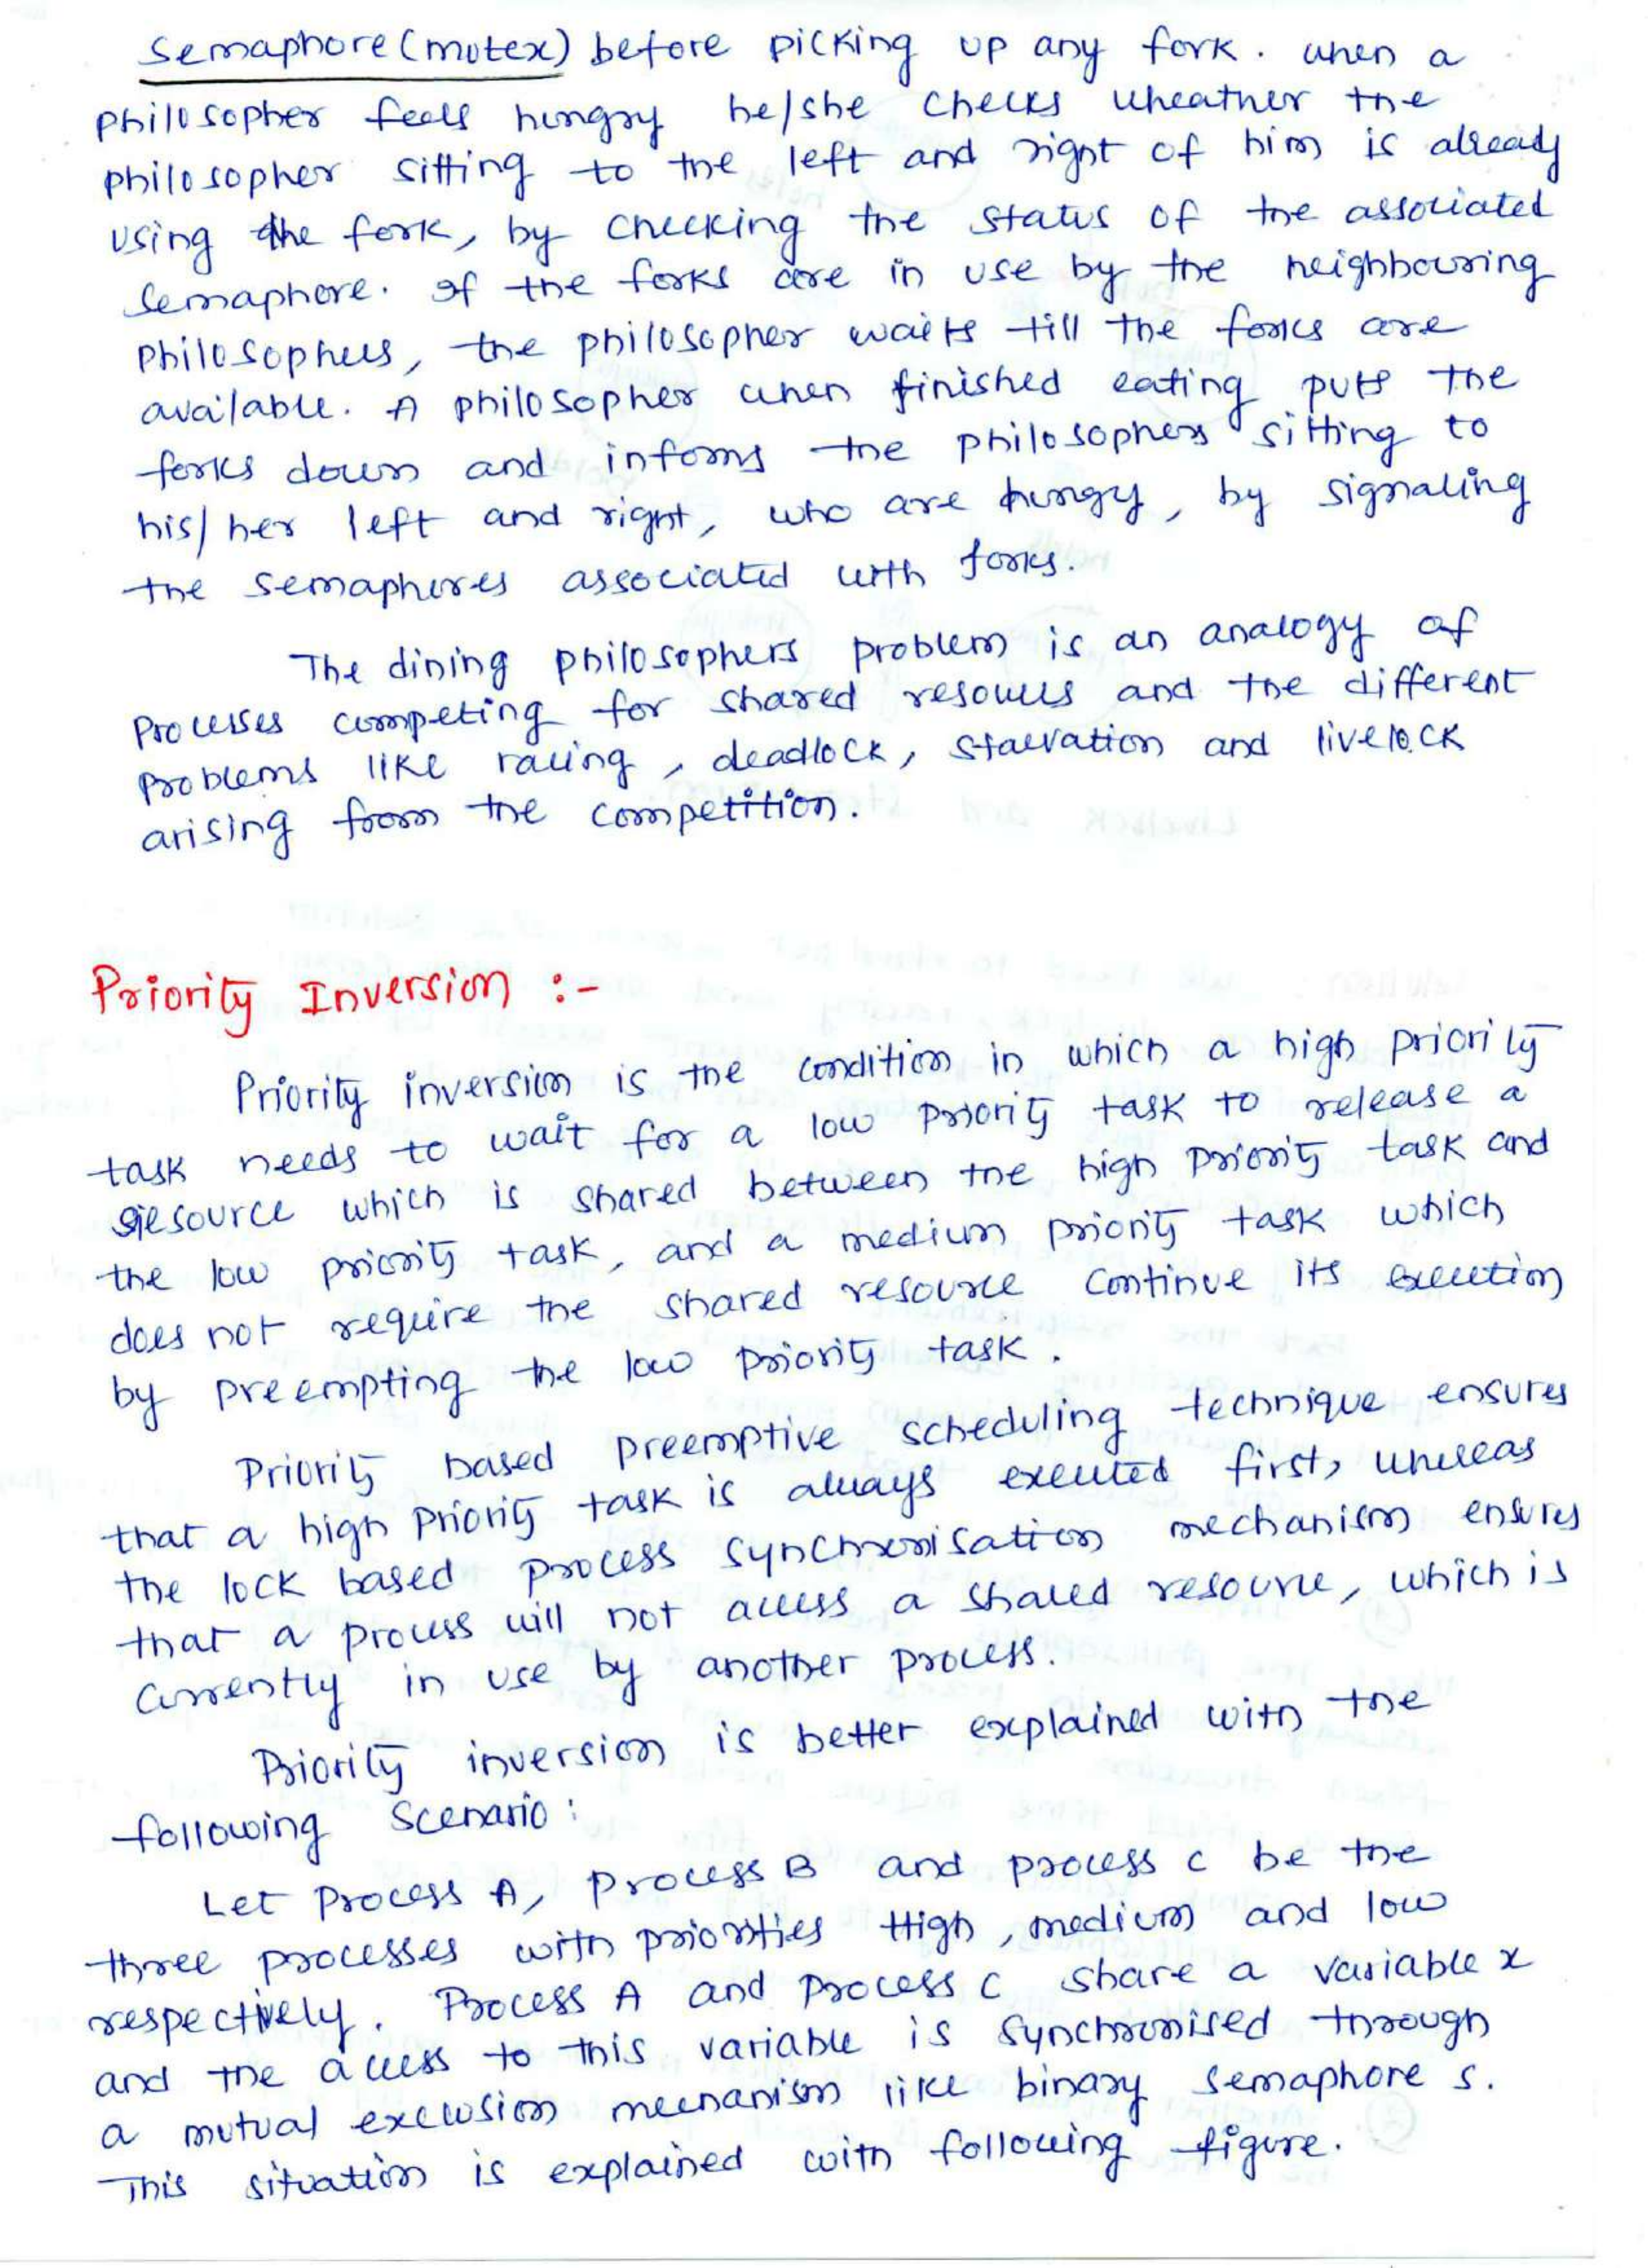 Semaphore (mutex) before picking up any fork. when a
philosopher feels hungry he/she checks wheather the
philosopher sitting to the left and right of him is already
using the fork, by checking the status of the associated
semaphore. If the forks are in use by the neighbouring
philosophers, the philosopher waits till the forks are
available. A philosopher when finished eating puts the
forks down and informs the philosophers sitting to
his/her left and right, who are hungy, by signaling
the semaphores associated with forks.
The dining philosophers problem is an analogy of
processes competing for shared resources and the different
problems like racing, deadlock, starvation and livelock
arising from the competition.
Priority Inversion :-
Priority inversion is the condition in which a high priority
task needs to wait for a low priority task to release a
resource which is shared between the high priority task and
the low priority task, and a medium priority task which
does not require the shared resource continue its execution
by preempting the low priority task.
Priority based preemptive scheduling technique ensures
that a high priority task is always executed first, whereas
the lock based process synchronisation mechanism ensures
that a process will not access a shared resource, which is
currently in use by another process.
Priority inversion is better explained with the
following scenario:
Let process A, process B and process C be the
three processes with priorities High, medium and low
respectively. Process A and process C share a variable x
and the access to this variable is synchronised through
a mutual exclusion mechanism like binary semaphore S.
This situation is explained with following figure.